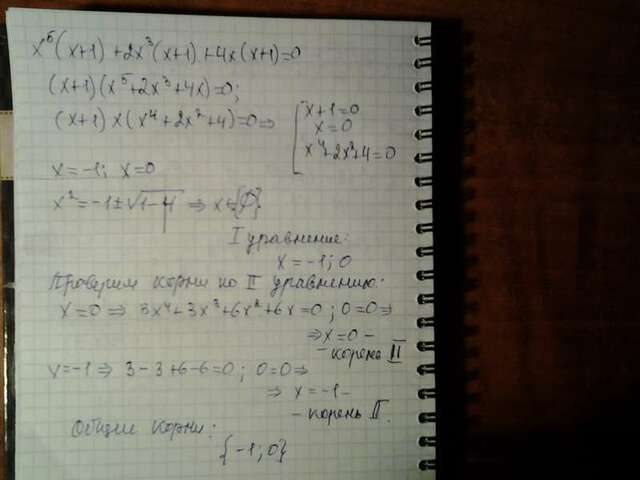 x⁵(x+1)+2x³(x+1)+4x(x+1)=0
(x+1)(x⁵+2x³+4x)=0;
(x+1)x(x⁴+2x²+4)=0⇒ [x+1=0
x=0
x⁴+2x²+4=0
x=-1; x=0
x²=-1±√1-4 ⇒ x∈{∅}
I уравнение:
x=-1; 0
Проверим корни по II уравнению:
x=0 ⇒ 3x⁴+3x³+6x²+6x=0; 0=0⇒
⇒x=0 -
- корень II
x=-1 ⇒ 3-3+6-6=0; 0=0⇒
⇒ x=-1-
- корень II.
Общие корни:
{-1; 0}